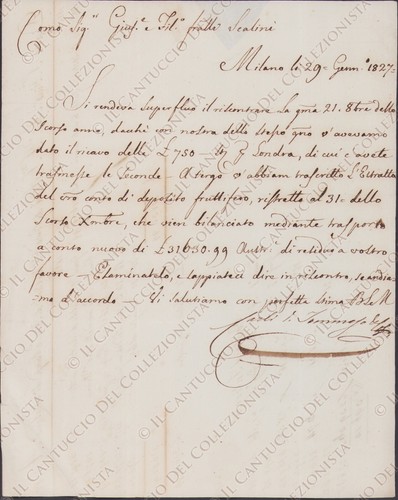 Como Sig.ri Gius.e e Fil.o fratelli Scalini
Milano li 29 Genn.o 1827
Si rendeva superfluo il riscontrare la gma 21. 8bre dello
scorso anno, dachè con nostra dello stesso gno v'avevamo
dato il ricavo delle £ 750 Londra, di cui c'avete
trasmesse le Seconde. Atergo v'abbiam trasferito l'Estratto
del vro conto di deposito fruttifero, ristretto al 31. dello
Scorso Xmbre, che vien bilanciato mediante trasporto
a conto nuovo di £31630.99 Austri. di residuo a vostro
favore. Esaminatelo, e sappiateci dire in riscontro, se andia-
mo d'accordo. Vi salutiamo con perfetta stima
© IL CANTUCCIO DEL COLLEZIONISTA